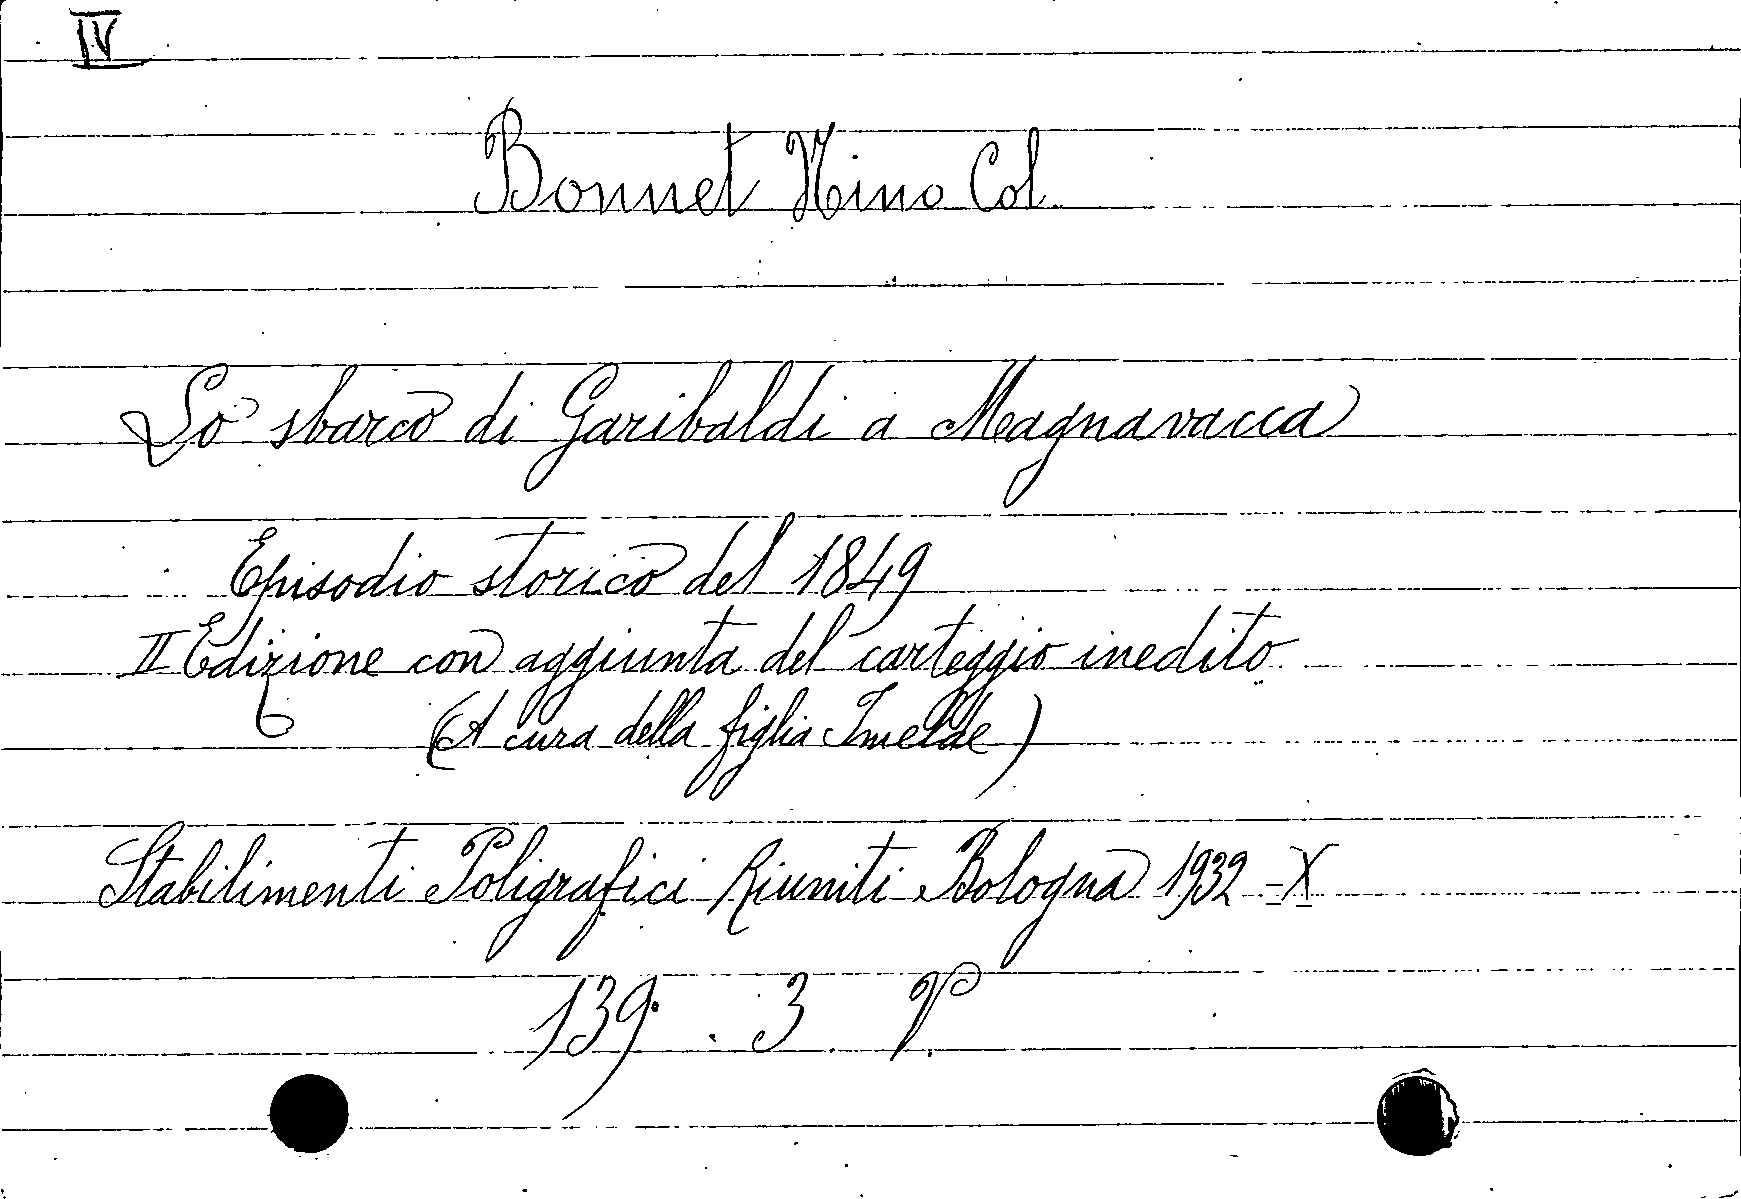 IV
Bonnet Nino Col.
Lo sbarco di Garibaldi a Magnavacca
Episodio storico del 1849
II Edizione con aggiunta del carteggio inedito
(A cura della figlia Imelde)
Stabilimenti Poligrafici Riuniti Bologna 1932-X
139. 3 V.